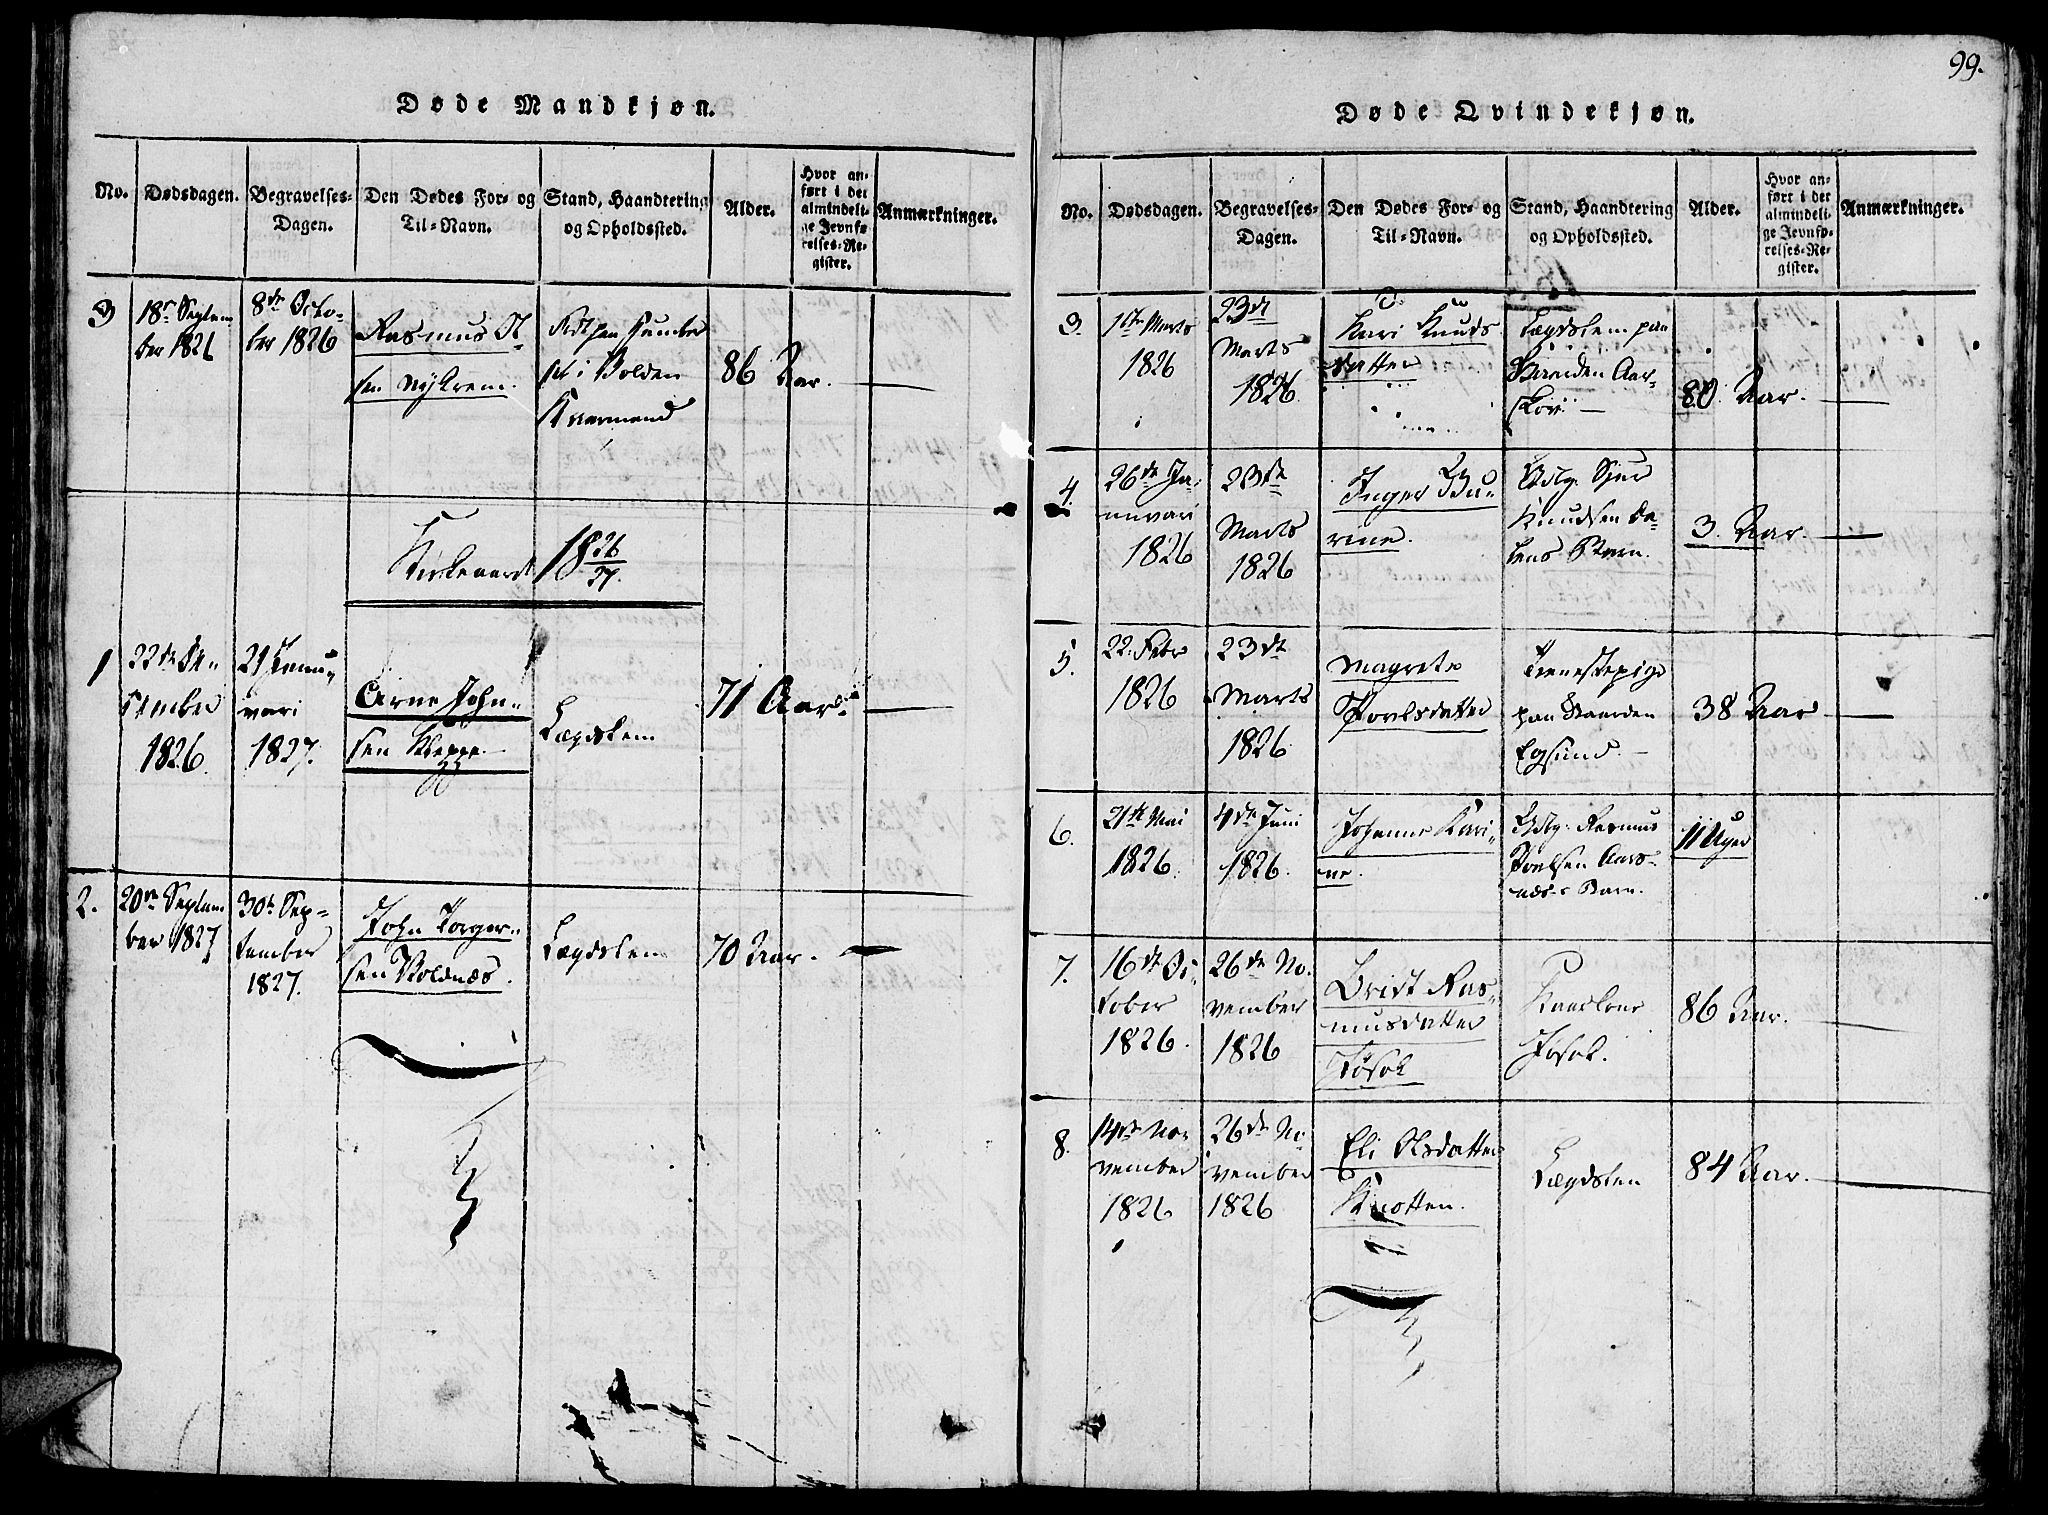 99.
Døde Mandkjøn.
No. Dødsdagen. Begravelses-Dagen. Den Dødes For- og Til-Navn. Stand, Haandtering og Opholdssted. Alder. Hvor anført i det almindelige Jevnførelses-Register. Anmærkninger.
3
18 Septem
ber 1826
8de Octo-
ber 1826
Rasmus
sen Nykrem.
i Volden
Kvermend
86 Aar.
Kirkeaaret 18 26/27.
1
22de De-
cember
1826.
21 Janu-
vari
1827.
Arne John-
sen Kleppe.
Lægdslem
71 Aar
2.
20de Septem
ber 1827
30te Sep-
tember
1827.
John Torger-
sen Voldnæs.
Lægdslem
70 Aar.
Døde Qvindekjøn.
No. Dødsdagen. Begravelses-Dagen. Den Dødes For- og Til-Navn. Stand, Haandtering og Opholdssted. Alder. Hvor anført i det almindelige Jevnførelses-Register. Anmærkninger.
3.
1ste Marts
1826
23de
Marts
1826
Kari Knuds
datter
Lægdslem paa
Gaarden Aar-
skov
80 Aar.
4.
26de Ja-
nuvari
1826
23de
Marts
1826
Inger Bu-
rine.
Gdbr. Sjur
Knudsen
Barn.
3 Aar.
5.
22. Febr
1826
23de
Marts
1826
Magrete
Povelsdatter
Tienestepige
paa Gaarden
Egsund.
38 Aar
6.
21de Mai
1826.
4de Juni
1826.
Johanne Kari-
ne.
Rasmus
Povelsen Aars-
næs-s Barn.
11 Uger
7.
16de Oc-
tober
1826.
26de No-
vember
1826
Brist Ras-
musdatter
Jøsok
Kaarkone
Jøsok.
86 Aar.
8.
14de No-
vember
1826
26de No-
vember
1826
Eli Olsdatter
Knotten.
Lægdslem
84 Aar.